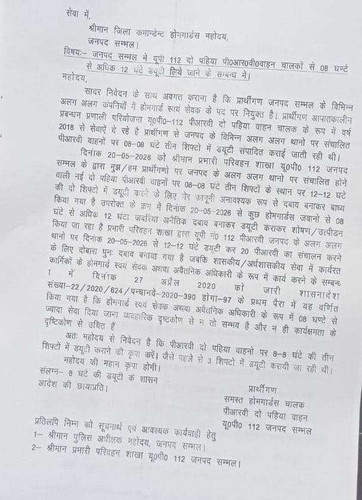 सेवा में,
श्रीमान जिला कमाण्डेन्ट होमगार्डस महोदय,
जनपद सम्भल।
विषयः- जनपद सम्भल में यूपी 112 दो पहिया पी०आर०वी०वाहन चालकों से 08 घण्टे
से अधिक 12 घंटे डयूटी लिये जाने के सम्बन्ध में।
महोदय,
सादर निवेदन के साथ अवगत कराना है कि प्रार्थीगण जनपद सम्भल के विभिन्न
अलग अलग कंपनियों में होमगार्ड स्वयं सेवक के पद पर नियुक्त है। प्रार्थीगण आपातकालीन
प्रबन्धन प्रणाली परियोजना यू०पी०-112 पीआरवी दो पहिया वाहन चालक के रूप में वर्ष
2018 से सेवाऐं दे रहे है प्रार्थीगण से जनपद के विभिन्न अलग अलग थानो पर संचालित
पीआरवी वाहनों पर 08-08 घंटे तीन शिफ्टों में डयूटी संपादित कराई जाती रही थी।
दिनांक 20-05-2026 को श्रीमान प्रभारी परिवहन शाखा यू०पी० 112 जनपद
सम्भल के द्वारा मुझ/हम प्रार्थीगणो पर जनपद के अलग अलग थानों पर संचालित होने
वाली नई दो पहिया पीआरवी वाहनों पर 08-08 घंटे तीन शिफ्टों के स्थान पर 12-12 घंटे
की दो शिफ्टों में डयूटी करने के लिए गैर कानूनी अनावश्यक रूप से दबाव बनाकर बाध्य
किया गया है उपरोक्त के क्रम में दिनांक 20-05-2026 से कुछ होमगार्डस जवानो से 08
घंटे से अधिक 12 घंटा जबरिया अनैतिक दबाव बनाकर डयूटी कराकर शोषण/उत्पीडन
किया जा रहा है प्रभारी परिवहन शाखा द्वारा यूपी 112 पीआरवी जनपद के अलग अलग
थानो पर दिनांक 20-05-2026 से 12-12 घंटे डयूटी कर 20 पीआरवी का संचालन करने
के लिए दोबारा पुनः दबाव बनाया गया है जबकि शासकीय/अर्धशासकीय सेवा में कार्यरत
कार्मिकों के होमगार्ड स्वयं सेवक अथवा अवैतनिक अधिकारी के रूप में कार्य करने के सम्बन्ध
1 में दिनांक 27 अप्रैल 2020 को जारी शासनादेश
संख्या-22/2020/624/पन्चानवे-2020-390 होगा-97 के प्रथम पैरा में यह वर्णित
किया गया है कि होमगार्ड स्वयं सेवक अथवा अवैतनिक अधिकारी के रूप में 08 घण्टे से
ज्यादा सेवा दिया जाना व्यवहारिक दृष्टकोण से न तो सम्भव है और न ही कार्यक्षमता के
दृष्टिकोण से उचित है
अतः महोदय से निवेदन है कि पीआरवी दो पहिया वाहनों पर 8-8 घंटे की तीन
शिफ्टों में डयूटी कराने की कृपा करें। जैसे पहले से 3 शिफ्टों में डयूटी करायी जा रही थी।
महोदय की महान कृपा होगी।
संलग्न- 8 घंटे की डयूटी के शासन
आदेश की छायाप्रति।
प्रार्थीगण
समस्त होमगार्डस चालक
पीआरवी दो पहिया वाहन
यू०पी० 112 जनपद सम्भल
प्रतिलिपि निम्न को सूचनार्थ एवं आवश्यक कार्यवाही हेतु
1- श्रीमान पुलिस अधीक्षक महोदय, जनपद सम्भल।
2- श्रीमान प्रभारी परिवहन शाखा यू०पी० 112 जनपद सम्भल।